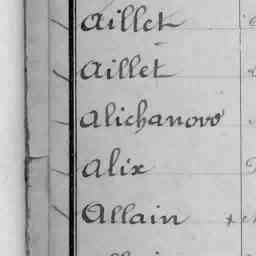 Aillet
Aillet
Alichanovo
Alix
Allain